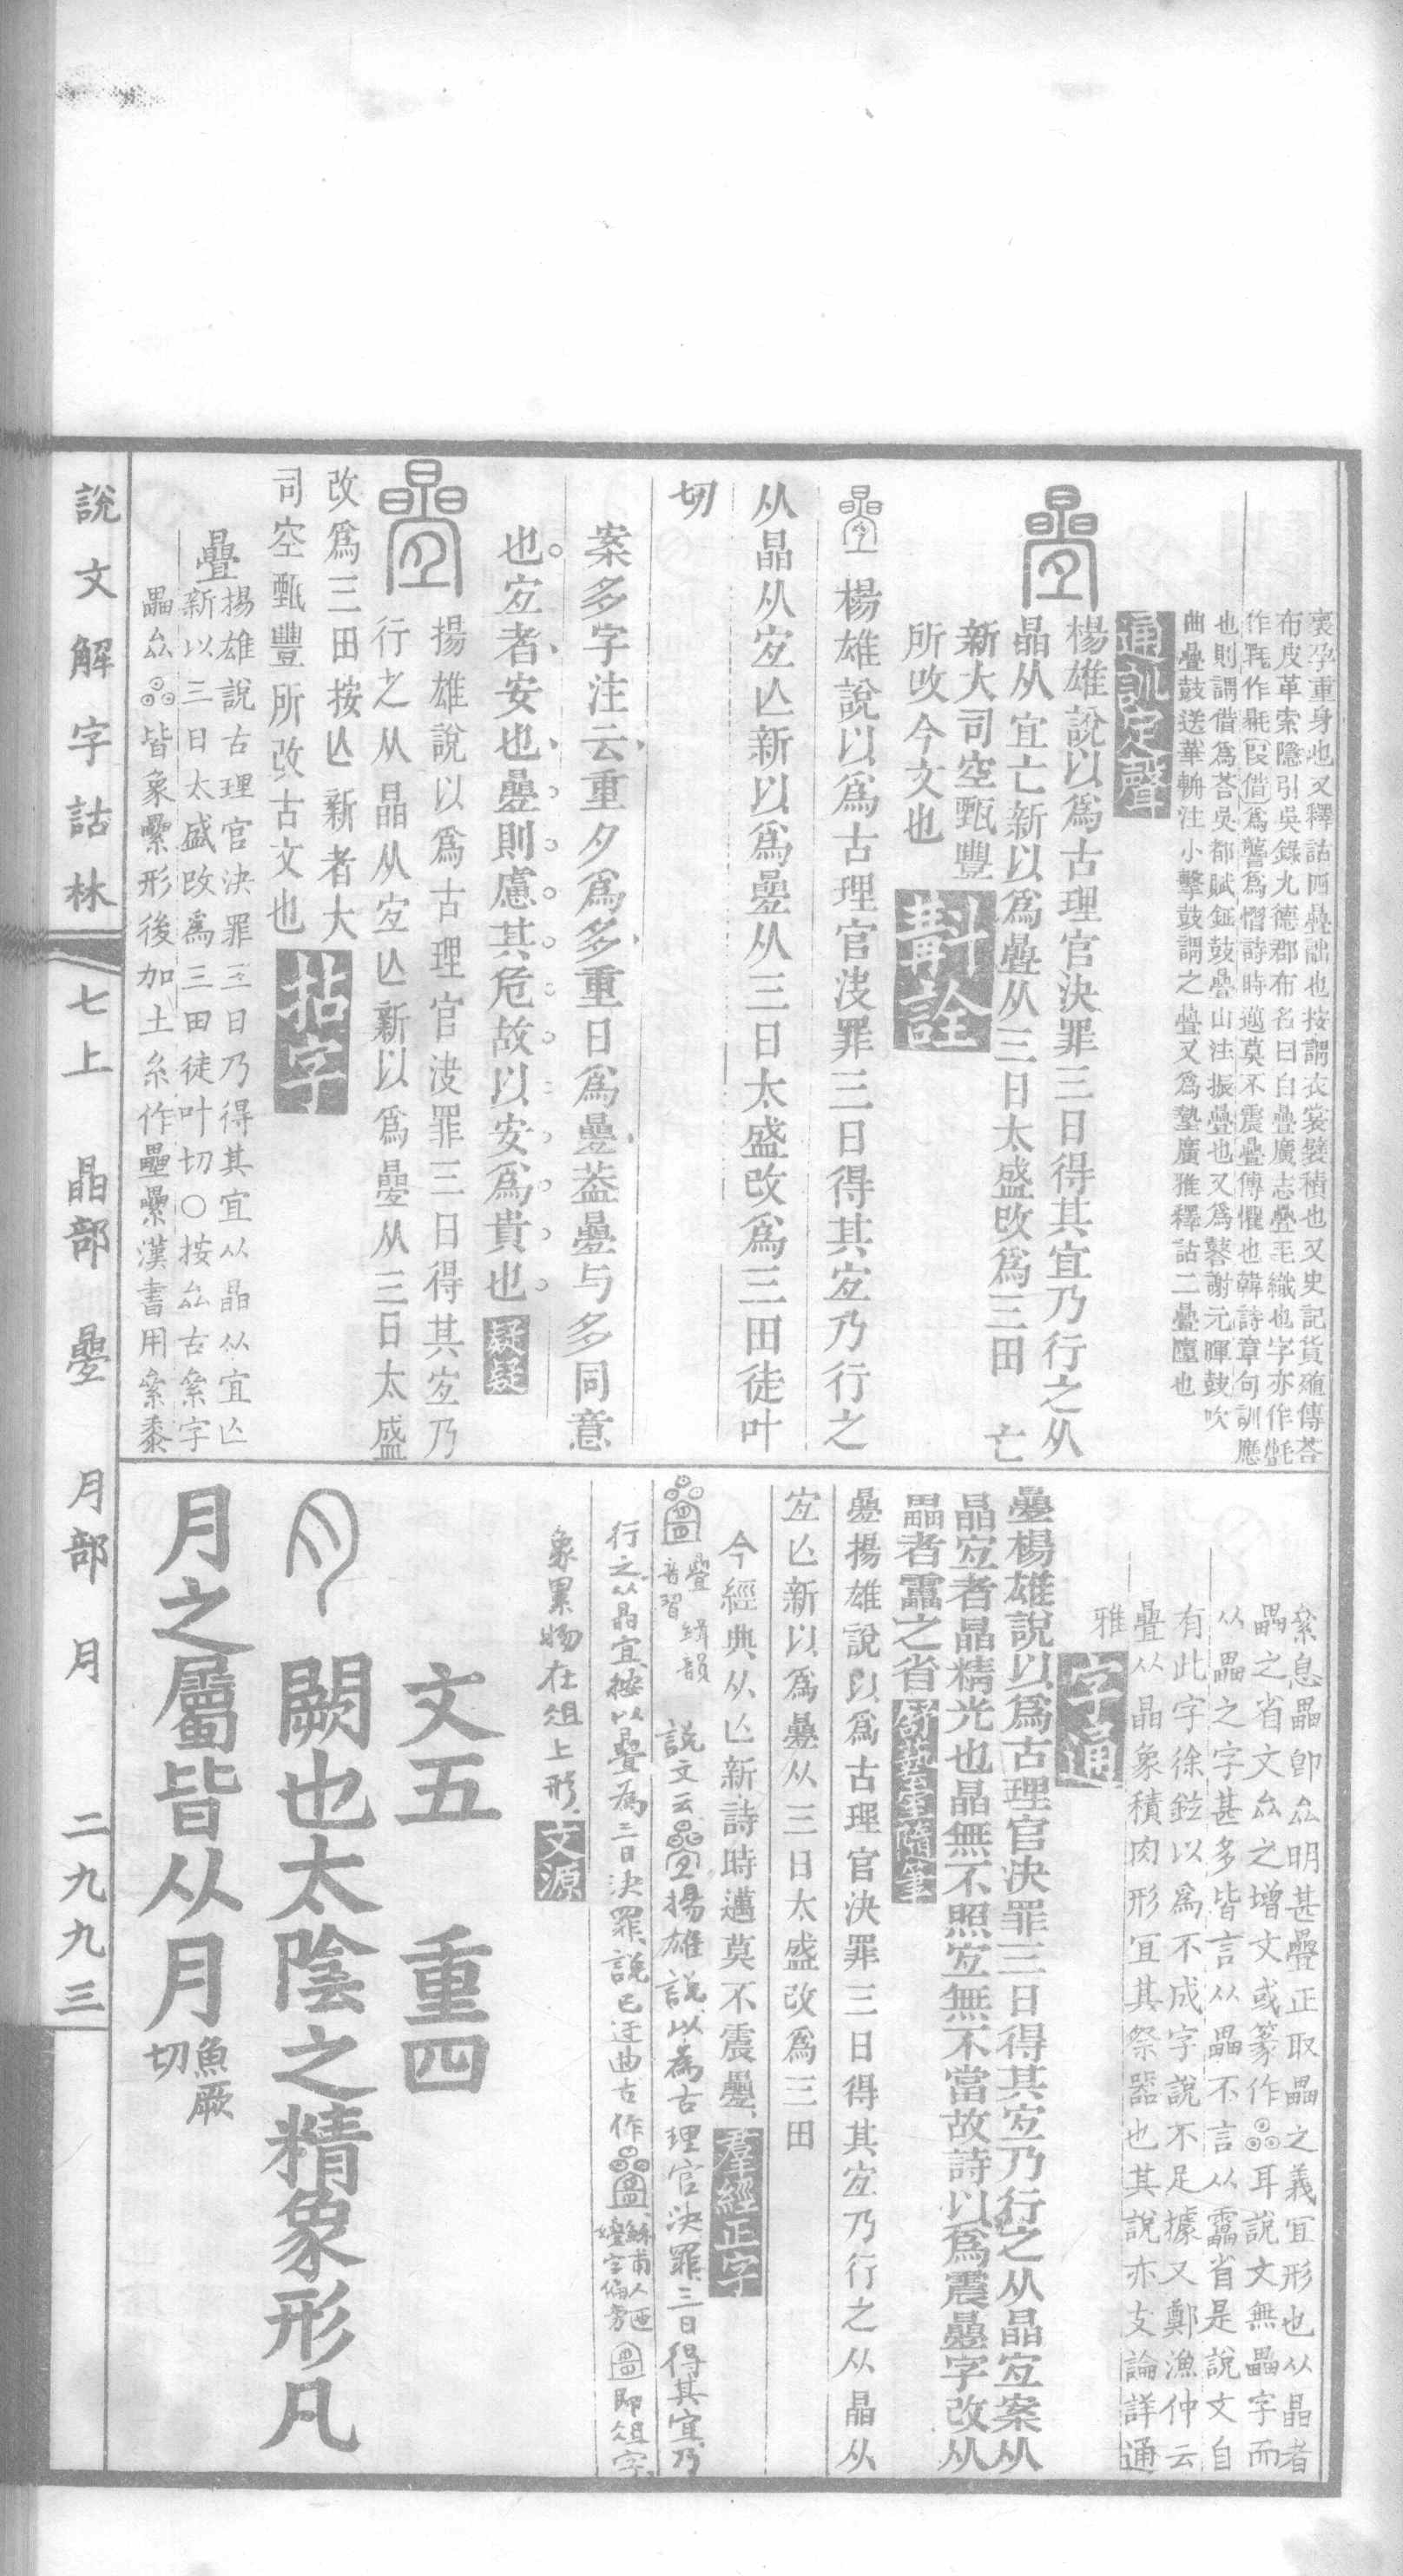 裹孕重身也又釋詁四疊詘也按謂衣裳襞積也又史記貨殖傳荅
布皮革索隱引吳錄九德郡布名曰白疊廣志疊毛織也字亦作㲲
作㲲作氎叚借爲讋爲慴詩時邁莫不震疊傳懼也韓詩章句訓應
也則謂借爲荅吳都賦鉦鼓疊山注振疊也又爲鼛謝元暉鼓吹
曲疊鼓送華輈注小擊鼓謂之疊又爲墊廣雅釋詁二疊墮也
通訓定聲
疊
楊雄說以爲古理官決罪三日得其宜乃行之从
晶从宜亡新以爲疊从三日太盛改爲三田 亡
新大司空甄豐
所改今文也
斠詮
疊 楊雄說以爲古理官決罪三日得其宜乃行之
从晶从宜亾新以爲疊从三日太盛改爲三田徒叶
切
案多字注云重夕爲多重日爲疊葢疊与多同意
也宐者安也疊則慮其危故以安爲貴也
疑疑
疊
揚雄說以爲古理官決罪三日得其宐乃
行之从晶从宐亾新以爲疊从三日太盛
改爲三田按亾新者大
司空甄豐所改古文也
拈字
疊
揚雄說古理官決罪三日乃得其宜从晶从宜亾
新以三日太盛改爲三田徒叶切○按厽古絫字
畾厽皆象纍形後加土糸作壘纍漢書用絫黍
絫息畾卽厽明甚疊正取畾之義宜形也从晶者
畾之省文厽之增文或篆作耳說文無畾字而
从畾之字甚多皆言从畾不言从靁省是說文自
有此字徐鉉以爲不成字說不足據又鄭漁仲云
疊从晶象積肉形宜其祭器也其說亦支論詳通
雅
字通
疊楊雄說以爲古理官決罪三日得其宐乃行之从晶宐案从
晶宐者晶精光也晶無不照宐無不當故詩以爲震疊字改从
畾者靁之省
疊揚雄說以爲古理官決罪三日得其宐乃行之从晶从
宐亾新以爲疊从三日太盛改爲三田
今經典从亾新詩時邁莫不震疊
羣經正字
疊音習 緝韻 說文云疊揚雄說以爲古理官決罪三日得其宜乃
行之从晶宜按以疊爲三日決罪說已迂曲古作 卽俎字
象累物在俎上形
文源
文五 重四
月
闕也太陰之精象形凡
月之屬皆从月魚厥切
說文解字詁林 七上 晶部 疊 月部 月 二九九三